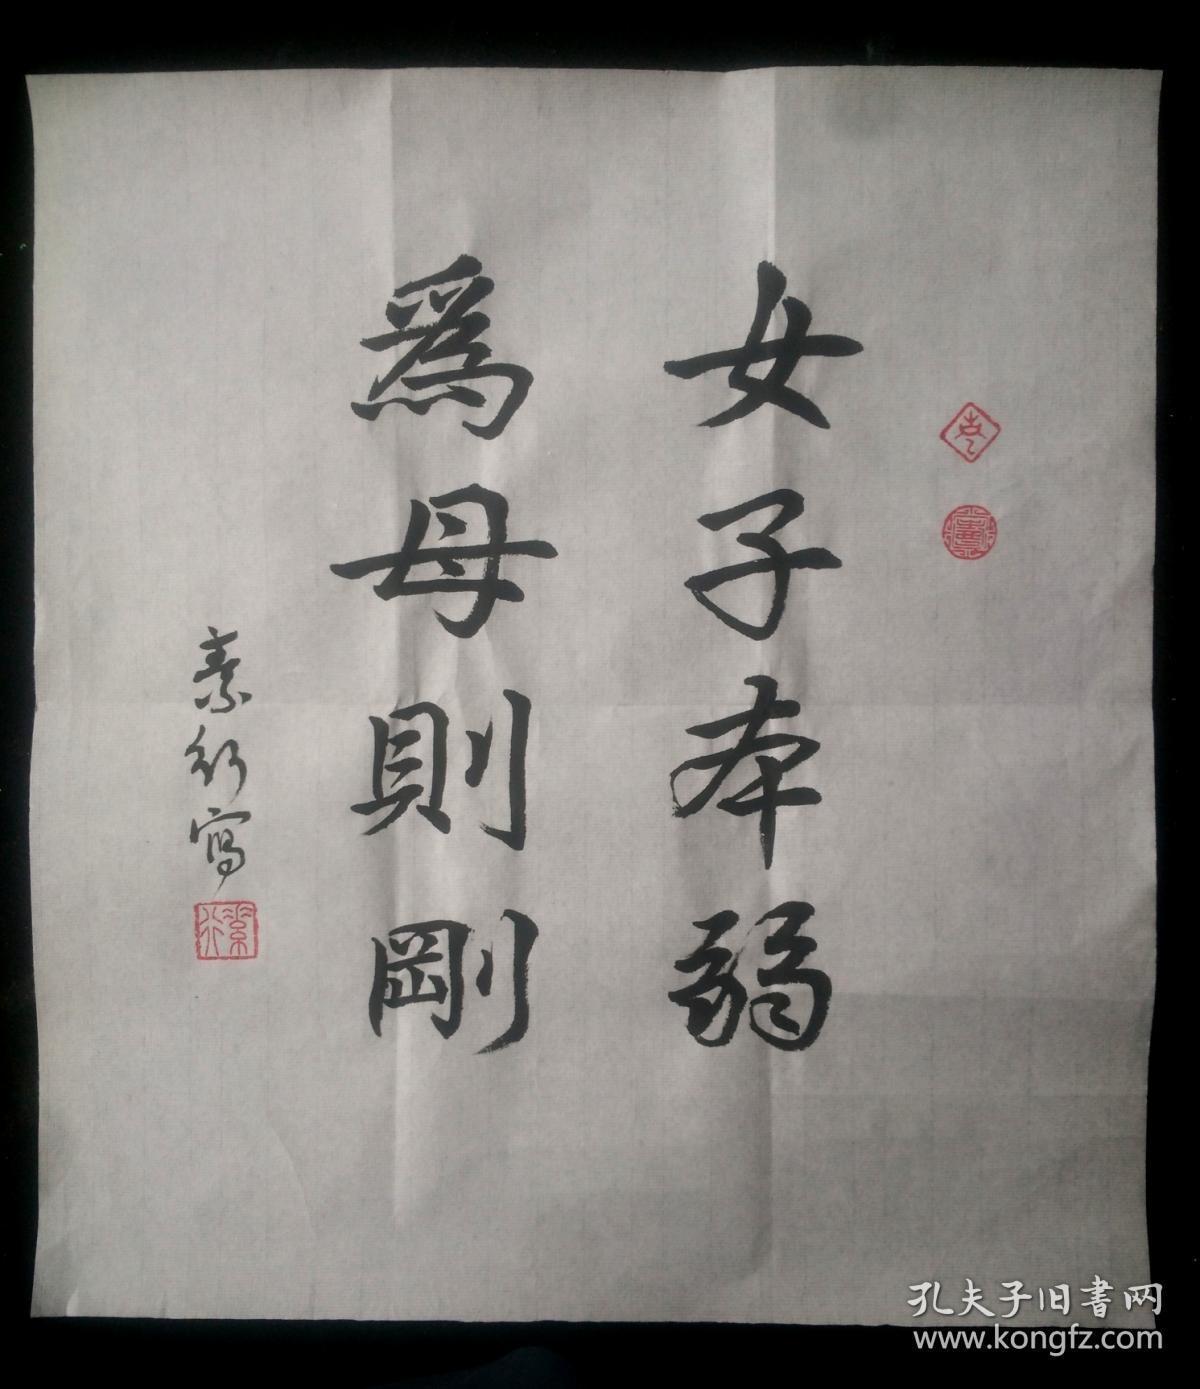 女子本弱
爲母則剛
素行寫
素行
孔夫子旧書网
www.kongfz.com